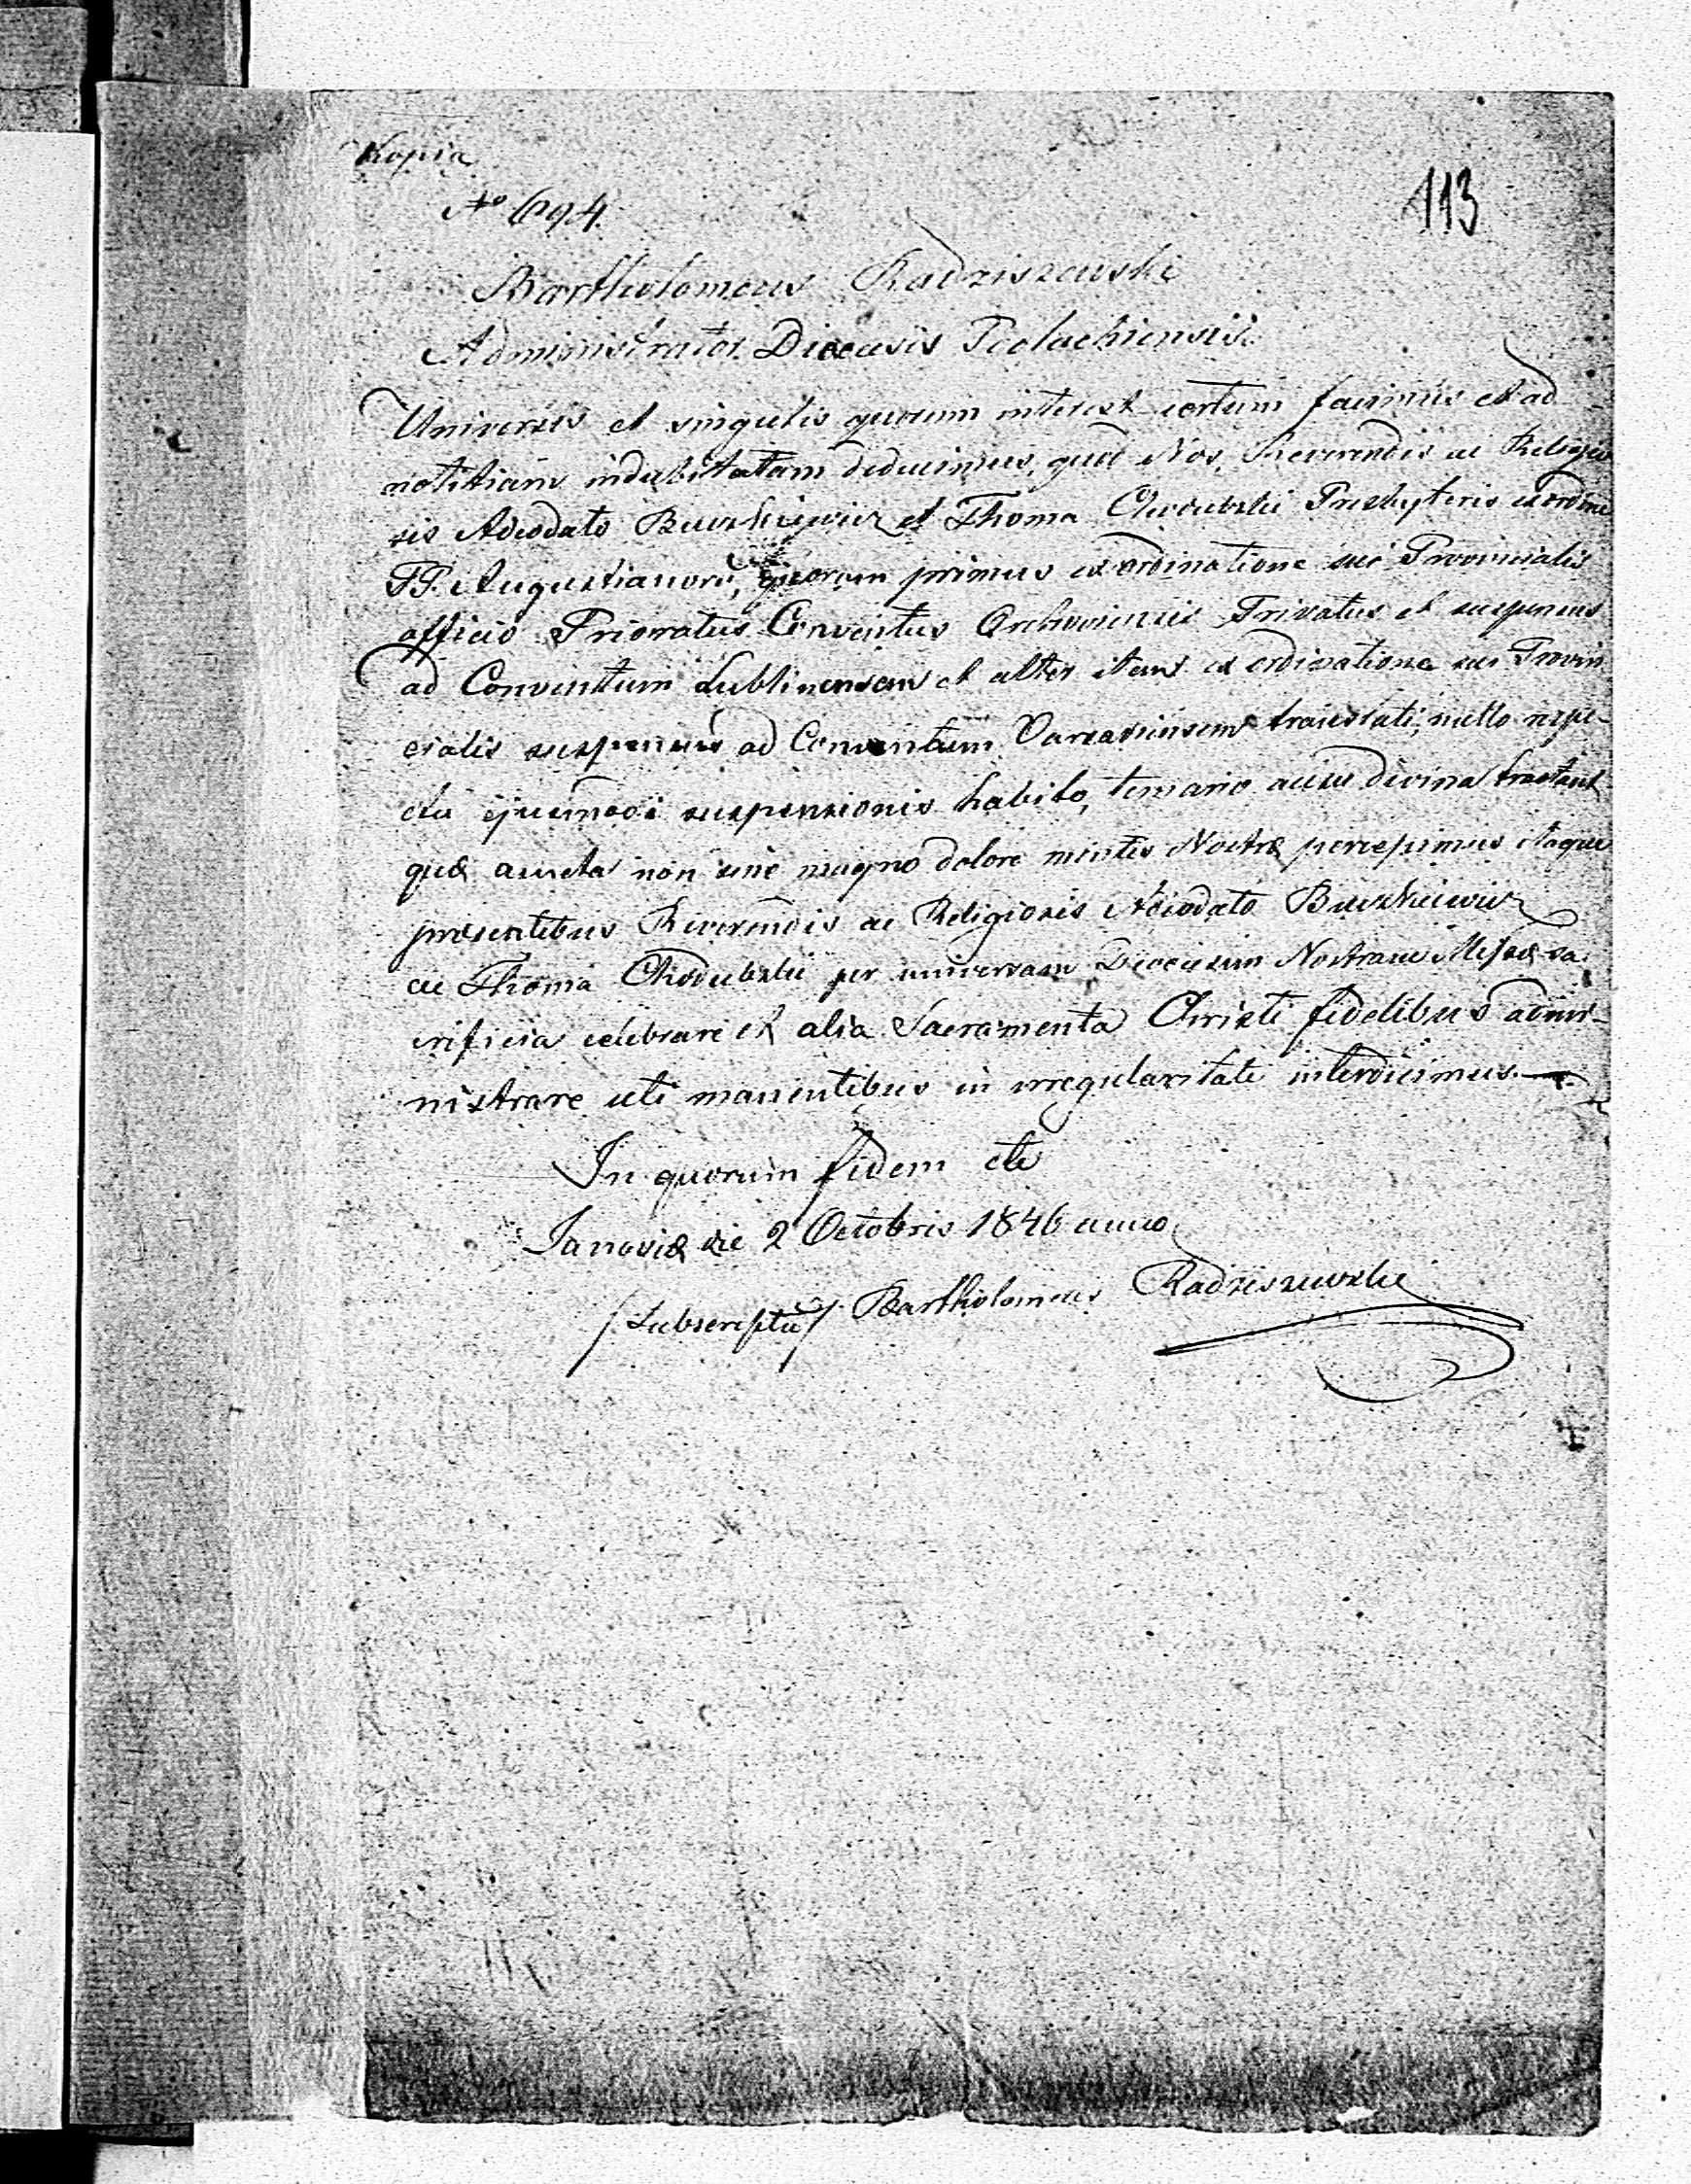 Kopia
113
No 694.
Bartholomeus Radziszewski
Administrator Diœcesis Podlachiensis
Universis et singulis quorum interest certum facimus et ad
notitiam indubitatam deducimus, quod Nos, Reverendis ac Religio
sis Adeodato et Thoma Chodubski Presbyteris ex ordine
FF. Augustianorũ, quorum primus ex ordinatione sui Provincialis
officio Prioratus Conventus Orchoviensis Privatus et suspensus
ad Conventum Lublinensem et alter item ex ordinatione sui Provin
cialis suspensus ad Conventum Varsaviensem translati, nullo respe-
ctu ejusmodi suspensionis habito, temario ausu divina tractant
quæ cuncta non sine magno dolore mentis Nostræ percepimus itaque
præsentibus Reverendis ac Religiosis Adeodato
ac Thoma Chodubski per universam Diœcesim Nostram Missæ sa
crificia celebrare et alia Sacramenta Christi fidelibus admi-
nistrare uti manentibus in irregularitate interdicimus.
In quorum fidem etc
Janoviæ die 2 Octobris 1846 anno
/Subscriptũ/ Bartholomeus Radziszewski